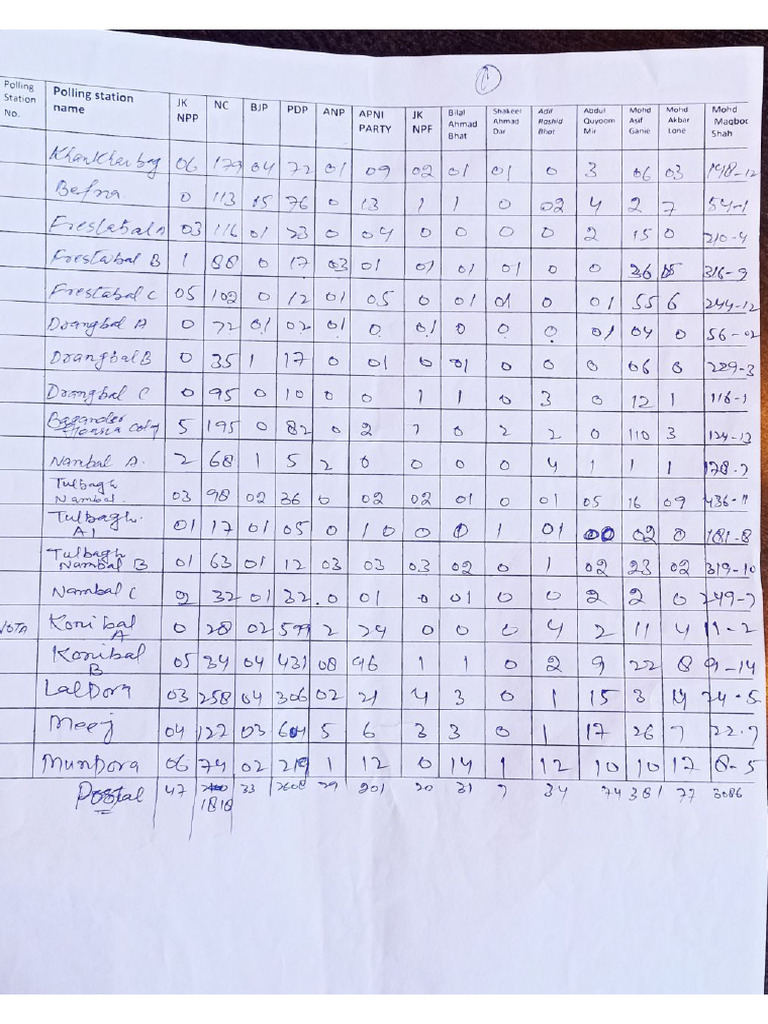 1
Polling Station No. Polling station name JK NPP NC BJP PDP ANP APNI PARTY JK NPF Bilal Ahmad Bhat Shakeel Ahmad Dar Adil Rashid Bhat Abdul Quyoom Mir Mohd Asif Ganie Mohd Akbar Lone Mohd Maqbool Shah
Khankharbag 06 179 04 72 01 09 02 01 01 0 3 06 03 198-12
0 113 15 76 0 13 1 1 0 02 4 2 7 54-1
Frestabal A 03 116 01 23 0 04 0 0 0 0 2 15 0 210-4
Frestabal B 1 88 0 17 03 01 01 01 01 0 0 36 316-9
Frestabal C 05 102 0 12 01 05 0 01 01 0 01 55 6 244-12
Drangbal A 0 72 01 02 01 0 01 0 0 0 01 04 0 56-02
Drangbal B 0 35 1 17 0 01 0 01 0 0 0 06 0 229-3
Drangbal C 0 95 0 10 0 0 1 1 0 3 0 12 1 116-1
5 195 0 82 0 2 7 0 2 2 0 110 3 124-13
Nambal A. 2 68 1 5 2 0 0 0 0 4 1 1 1 178-7
Tulbagh Nambal. 03 98 02 36 0 02 02 01 0 01 05 16 09 436-11
Tulbagh. A1 01 17 01 05 0 10 0 0 1 01 00 02 0 181-8
Tulbagh Nambal B 01 63 01 12 03 03 03 02 0 1 02 23 02 319-10
Nambal C 2 32 01 32 0 01 0 01 0 0 2 2 0 249-7
NOTA Konibal A 0 28 02 599 2 24 0 0 0 4 2 11 4 11-2
Konibal B 05 34 04 431 08 96 1 1 0 2 9 22 8 9-14
LalDora 03 258 04 306 02 21 4 3 0 1 15 3 14 74-5
Meej 04 122 03 604 5 6 3 3 0 1 17 26 7 22-7
Munpora 06 74 02 219 1 12 0 14 1 12 10 10 17 8-5
Postal 47 33 2608 29 201 20 31 7 34 74 381 77 3086
1818